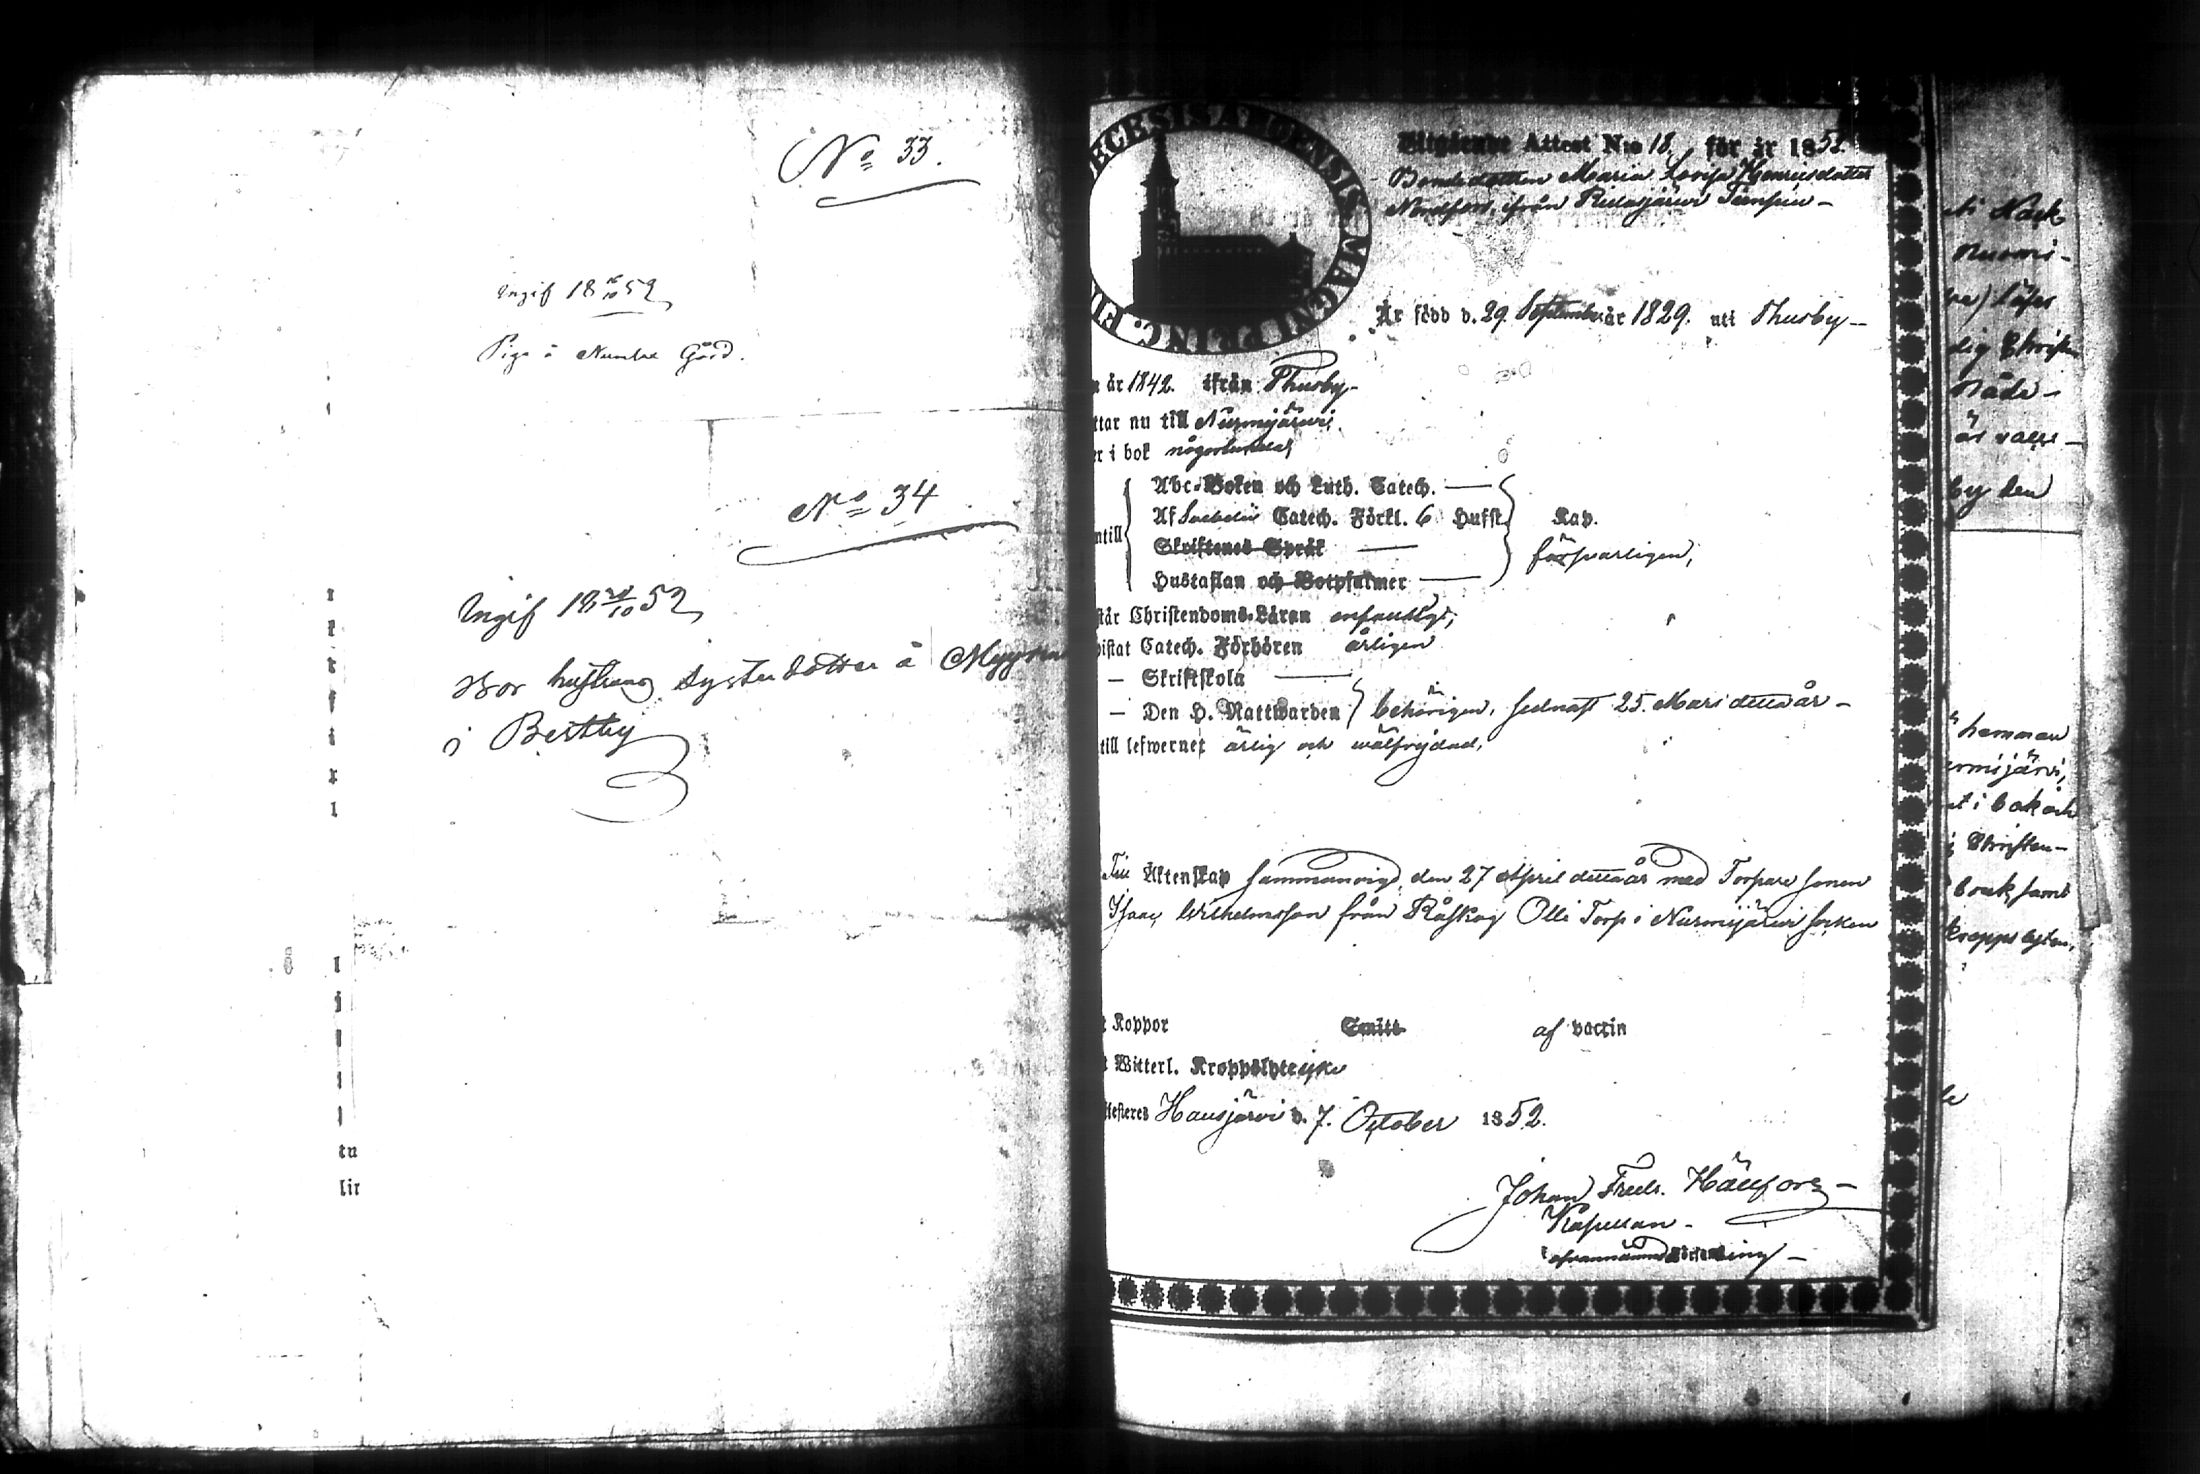 No 33.
Ingif 18 52
Piga å Numlax Gård.
No 34
Ingif 18 24/10 52
Bor hustruns Systerdotter å
i Bertby
tn
lir
ECESIS ABOENSIS MAGNI PRINC. FI
Utgående Attest N:o 18. för år 1852.
Bondedottren Maria Lovisa Henricsdotter
Nordfors, ifrån Ridasjärvi
Är född d. 29 September år 1829. uti Thusby—
n år 1842. ifrån Thusby—
ttar nu till Nurmijärvi;
er i bok någorlunda;
Abc-Boken och Luth. Catech. —
Af Svebelii Catech. Förkl. 6 Hufst. Kap.
ntill
Skriftenes Språk —
försvarligen;
Hustaflan och Botpsalmer —
står Christendoms-Läran enfaldigt;
vistat Catech. Förhören årligen
— Skriftskola —
— Den H. Nattwarden behörigen, sednast 25. Mars detta år —
till lefwernet ärlig och wälfrejdad,
Till Äktenskap sammanvigd den 27 April detta år med Torpare sonen
Isaac Wilhelmsson från Råskog Olli Torp i Nurmijärvi socken
t Koppor Smitt af vaccin
Witterl. Kroppslyte icke
ttesteres Hausjärvi d. 7. October 1852.
Johan Fredr.
Kapellan—
hemman
rmijärvi,
t i bok och
Christen-
bok, samt
kroppslyten,
by den